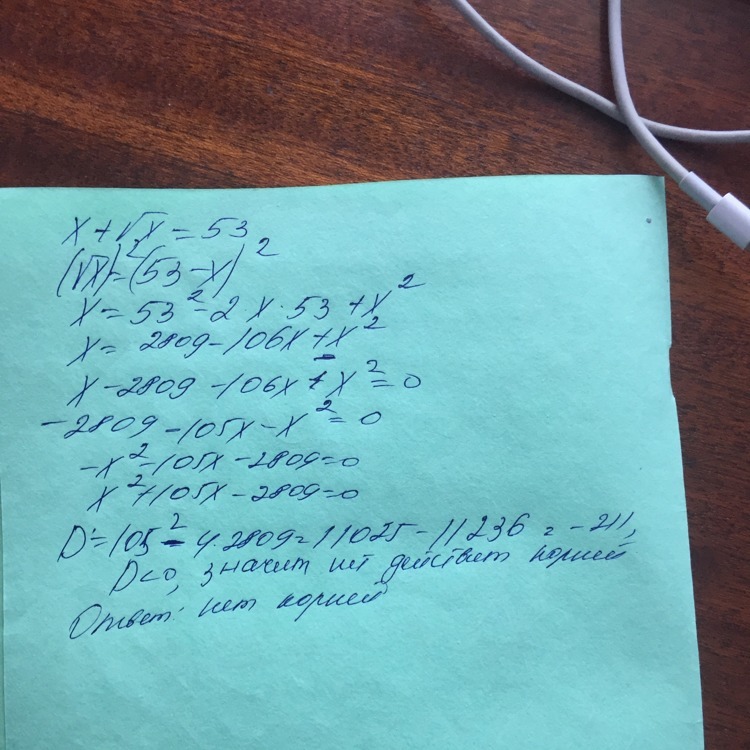 x + √x = 53
(√x)² = (53 - x)²
x = 53² - 2x·53 + x²
x = 2809 - 106x + x²
x - 2809 - 106x + x² = 0
-2809 - 105x - x² = 0
-x² - 105x - 2809 = 0
x² + 105x - 2809 = 0
D = 105² - 4·2809 = 11025 - 11236 = -211,
D<0, значит нет действит корней
Ответ: нет корней